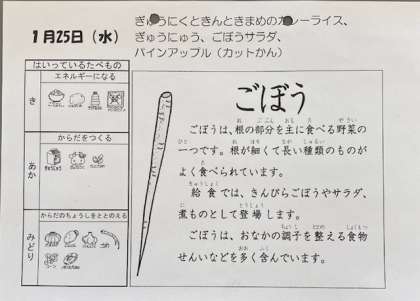 1月25日（水）
ぎゅうにくときんときまめのカレーライス、
ぎゅうにゅう、ごぼうサラダ、
パインアップル（カットかん）
はいっているたべもの
エネルギーになる
き
からだをつくる
あか
からだのちょうしをととのえる
みどり
ごぼう
ごぼうは、根の部分を主に食べる野菜の
一つです。根が細くて長い種類のものが
よく食べられています。
給食では、きんぴらごぼうやサラダ、
煮ものとして登場します。
ごぼうは、おなかの調子を整える食物
せんいなどを多く含んでいます。